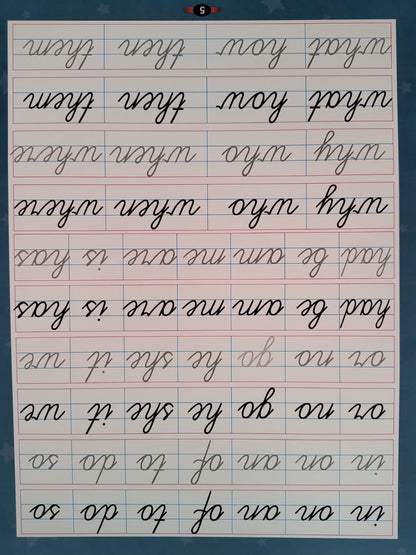 in on an of to do so
in on an of to do so
or no go he she it we
or no go he she it we
had be am me are is has
had be am me are is has
why who when where
why who when where
what how then them
what how then them
5